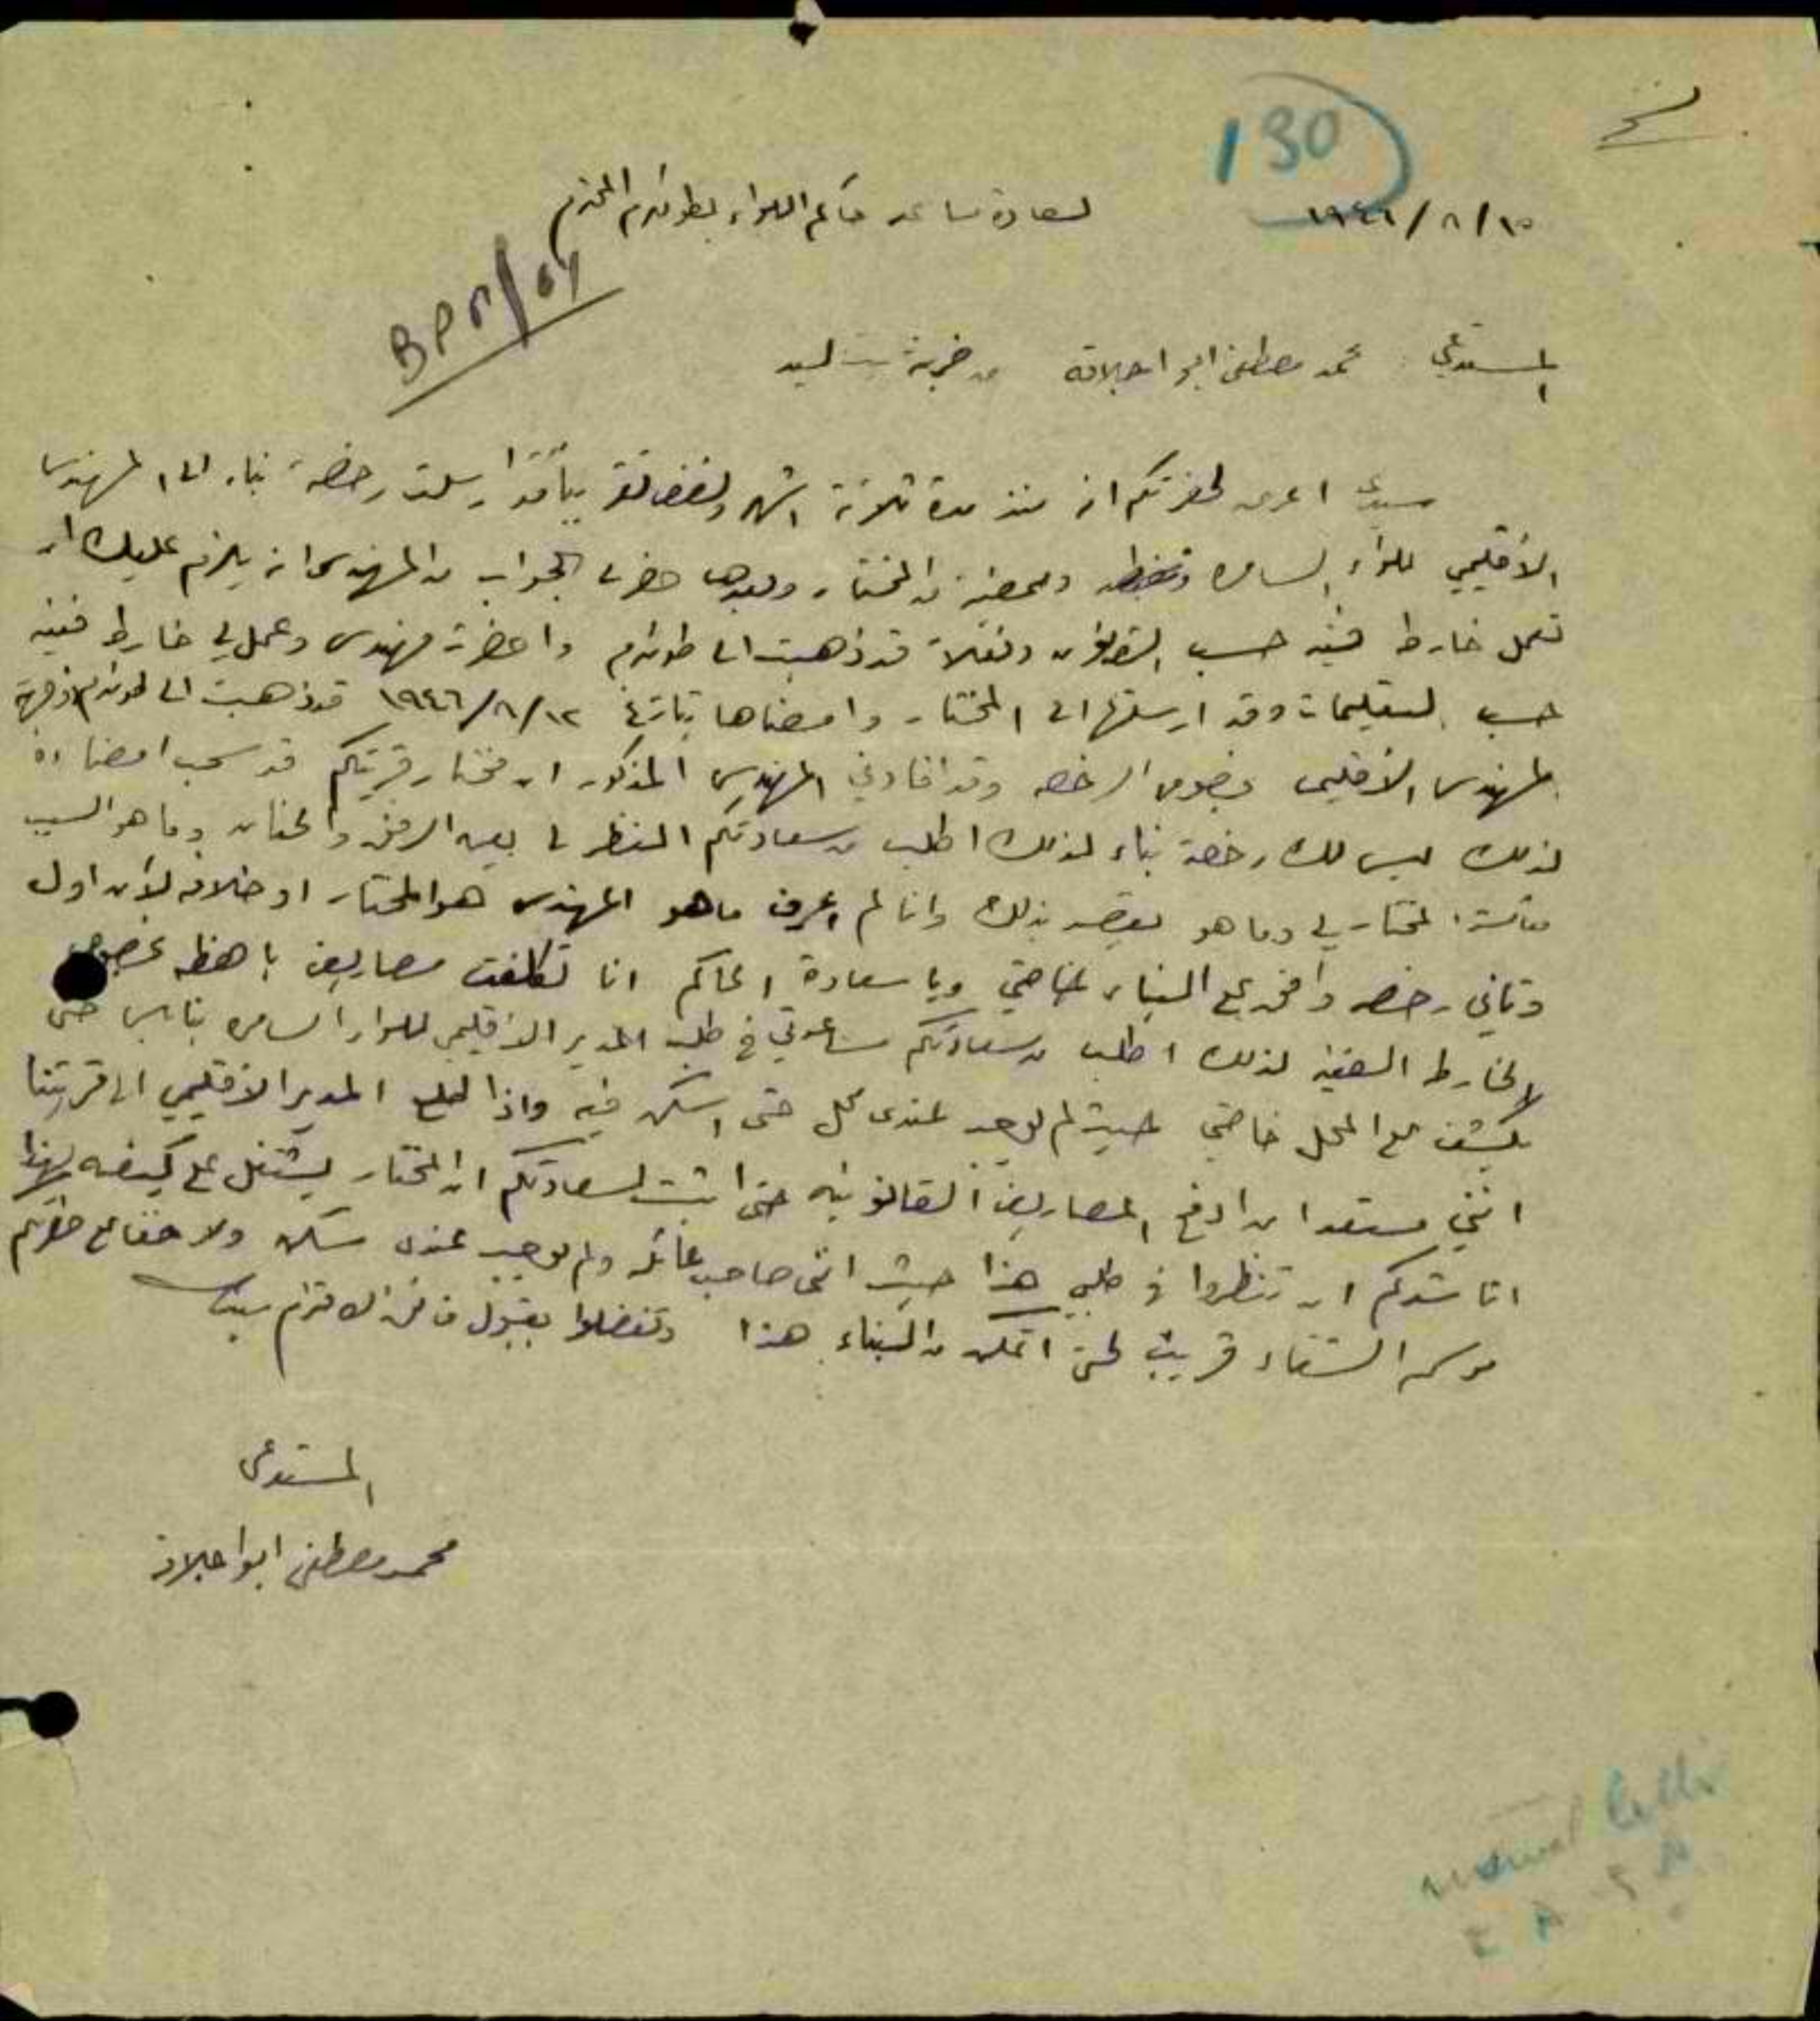 130
١٥/٨/١٩٤٦
لسعادة مساعد حاكم اللواء بطولكرم المحترم
المستدعي : محمد مصطفى ابو اجلاقه من خربة بيت ليد
سيدي اعرض لحضرتكم انه منذ مدة ثلاثة اشهر ارسلت رخصة بناء الى المهندس
الاقليمي للواء السامره وممضيه من المختار وبعدها حضر لي الجواب من المهندس انه يلزم عليك ان
تعمل خارطه فنيه حسب القانون وفعلا قد ذهبت الى طولكرم واحضرت مهندس وعمل لي خارطه فنيه
حسب التعليمات وقد ارسلتها الى المختار وامضاها بتاريخ ١٢/٨/١٩٤٦ قد ذهبت الى طولكرم
المهندس الاقليمي بخصوص الرخصه وقد افادني المهندس المذكور ان مختار قريتكم قد سحب امضاءه
لذلك ليس لك رخصة بناء لذلك اطلب من سعادتكم النظر لي بعين الرفق والحنان وما هو السبب
معاكسة المختار لي وما هو يقصد بذلك وانا لم اعرف ما هو المهندس هو المختار او خلافه لأن اول
وثاني رخصه وافق على البناء لخاصتي ويا سعادة الحاكم انا تكلفت مصاريف باهظه بخصوص
الخارطه الفنيه لذلك اطلب من سعادتكم مساعدتي في طلب المدير الاقليمي للواء السامره بنابلس حتى
يكشف على المحل خاصتي حيث لم يوجد عندي محل حتى اسكن فيه واذا طلع المدير الاقليمي الى قريتنا
انني مستعد ان ادفع المصاريف القانونيه حتى اثبت لسعادتكم ان المختار يشتغل على كيفه لهذا
اناشدكم ان تنظروا في طلبي هذا حيث انني صاحب عائله ولم يوجد عندي سكن ولا خفا على حضرتكم
موسم الشتاء قريب لحتى اتمكن من البناء هذا وتفضلوا بقبول فائق الاحترام سيدي
المستدعي
محمد مصطفى ابو اجلاقه